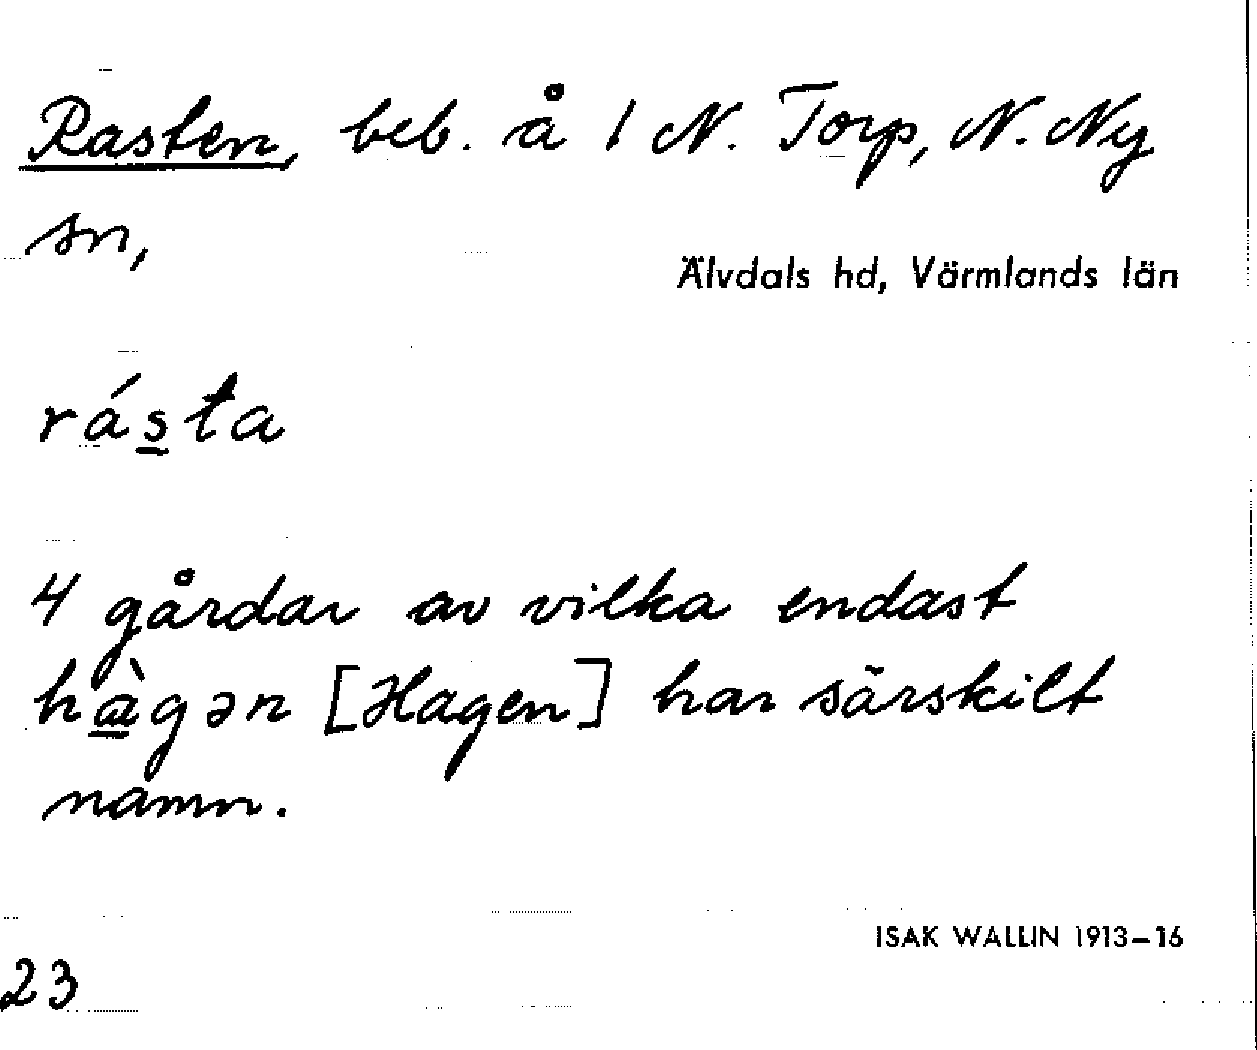 Rasten, beb. å 1 N. Torp, N. Ny
sn,
Älvdals hd, Värmlands län
rás̲ta
4 gårdar av vilka endast
hà̲gən [Hagen] har särskilt
namn.
ISAK WALLIN 1913–16
23